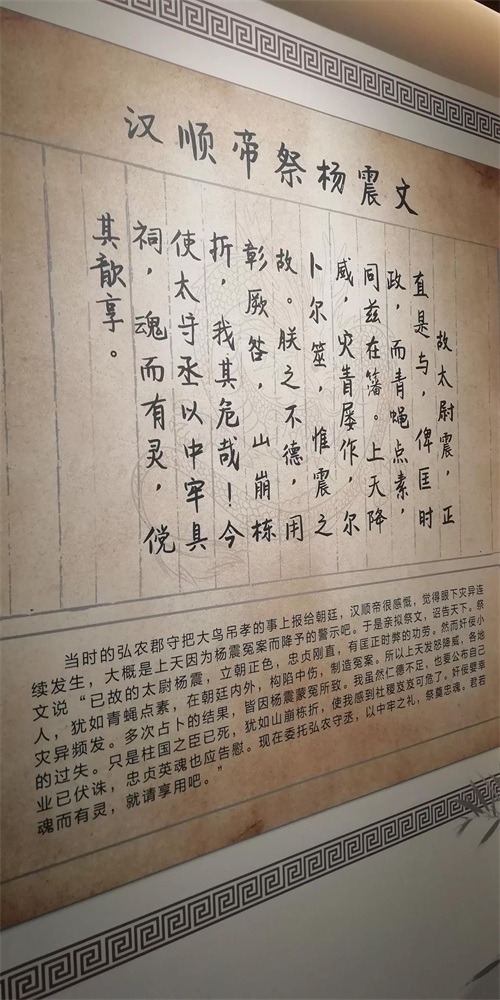 汉顺帝祭杨震文
故太尉震，正
直是与，俾匡时
政，而青蝇点素，
同兹在籓。上天降
威，灾眚屡作，尔
卜尔筮，惟震之
故。朕之不德，用
彰厥咎，山崩栋
折，我其危哉！今
使太守丞以中牢具
祠，魂而有灵，傥
其歆享。
当时的弘农郡守把大鸟吊孝的事上报给朝廷，汉顺帝很感慨，觉得眼下灾异连
续发生，大概是上天因为杨震冤案而降予的警示吧。于是亲拟祭文，诏告天下。祭
文说“已故的太尉杨震，立朝正色，忠贞刚直，有匡正时弊的功劳。然而奸佞小
人，犹如青蝇点素，在朝廷内外，构陷中伤，制造冤案。所以上天发怒降威，各地
灾异频发。多次占卜的结果，皆因杨震蒙冤所致。我虽然仁德不足，也要公布自己
的过失。只是柱国之臣已死，犹如山崩栋折，使我感到社稷岌岌可危了。奸佞嬖幸
业已伏诛，忠贞英魂也应告慰。现在委托弘农守丞，以中牢之礼，祭奠忠魂。君若
魂而有灵，就请享用吧。”